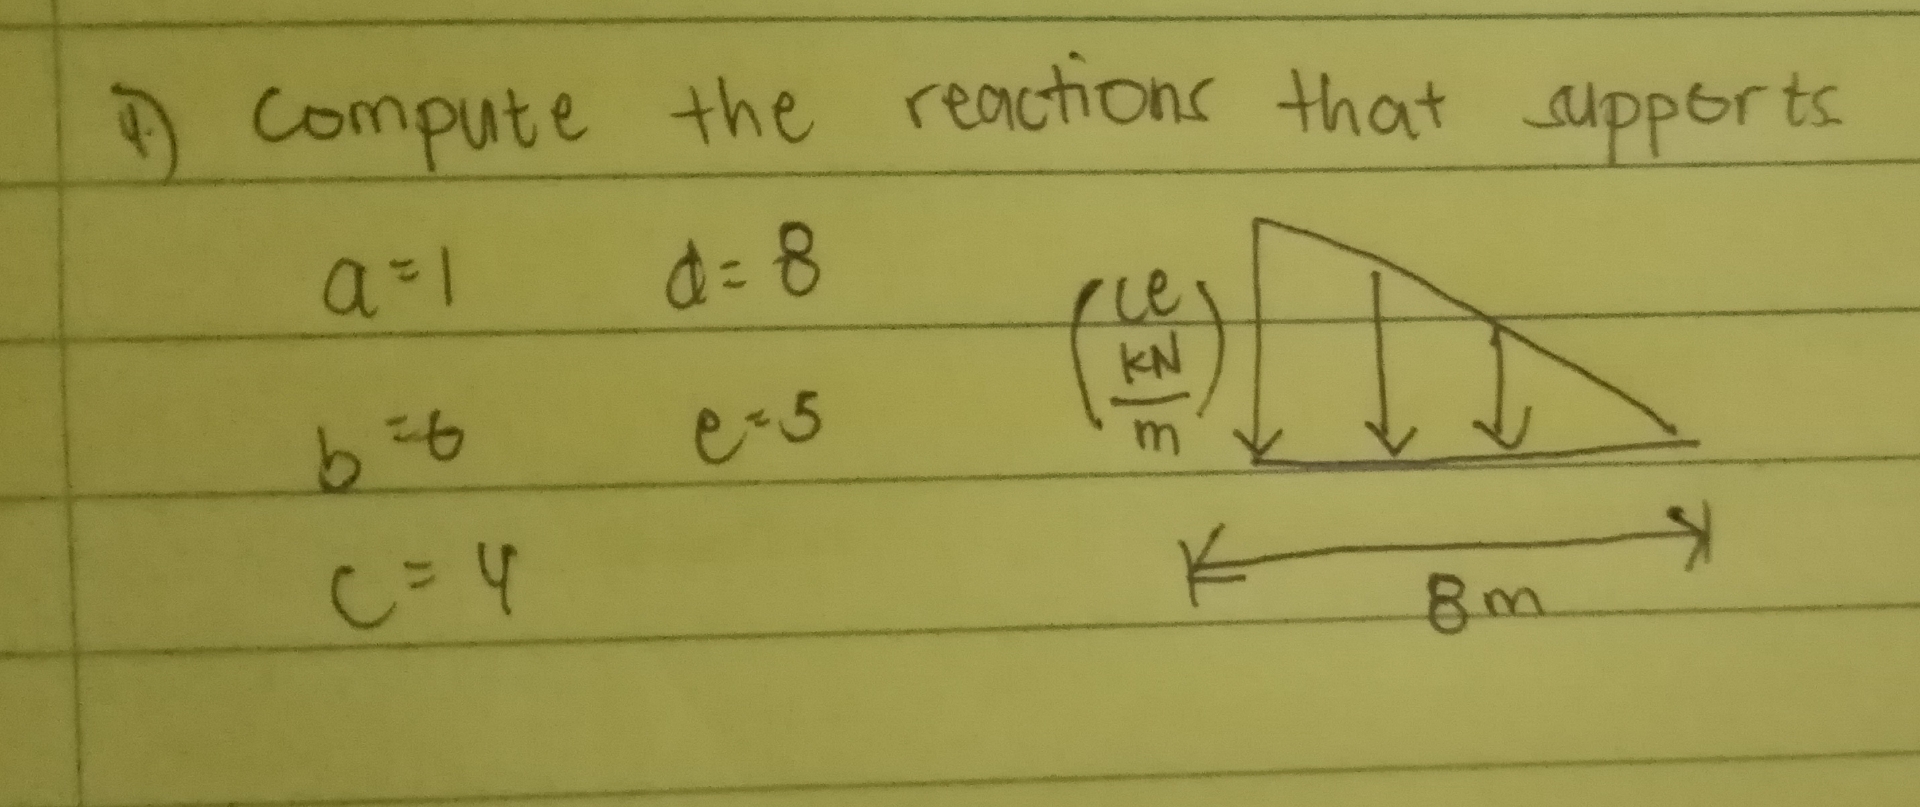 1) Compute the reactions that supports
a=1 d=8
(ce kN/m)
b=6 e=5
c=4
8m